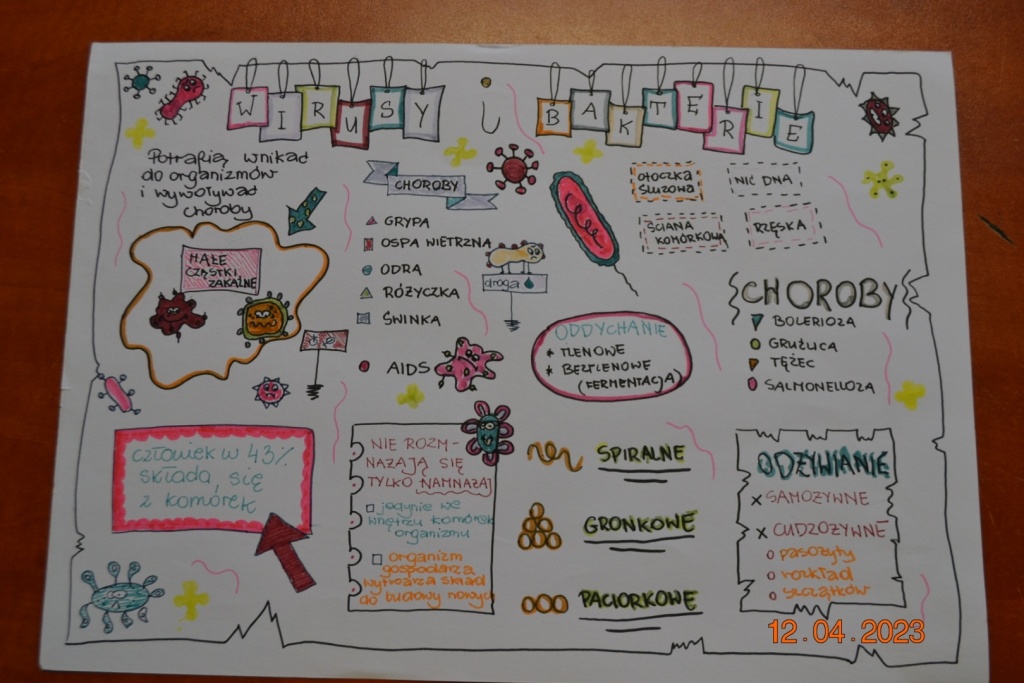 WIRUSY
i
BAKTERIE
Potrafią wnikać
do organizmów
i wywoływać
choroby
MAŁE
CZĄSTKI
ZAKAŹNE
CHOROBY
GRYPA
OSPA WIETRZNA
ODRA
RÓŻYCZKA
ŚWINKA
AIDS
droga
OTOCZKA
ŚLUZOWA
NIĆ DNA
ŚCIANA
KOMÓRKOWA
RZĘSKA
ODDYCHANIE
* TLENOWE
* BEZTLENOWE
(FERMENTACJA)
CHOROBY
BOLERIOZA
GRUŹLICA
TĘŻEC
SALMONELLOZA
człowiek w 43%
składa się
z komórek
NIE ROZM-
NAŻAJĄ SIĘ
TYLKO NAMNAŻAJ
jedynie we
wnętrzu komórek
organizmu
organizm
gospodarza
wytwarza skład
do budowy nowych
SPIRALNE
GRONKOWE
PACIORKOWE
ODŻYWIANIE
x SAMOŻYWNE
x CUDZOŻYWNE
o pasożyty
o rozkład
o szczątków
12.04.2023